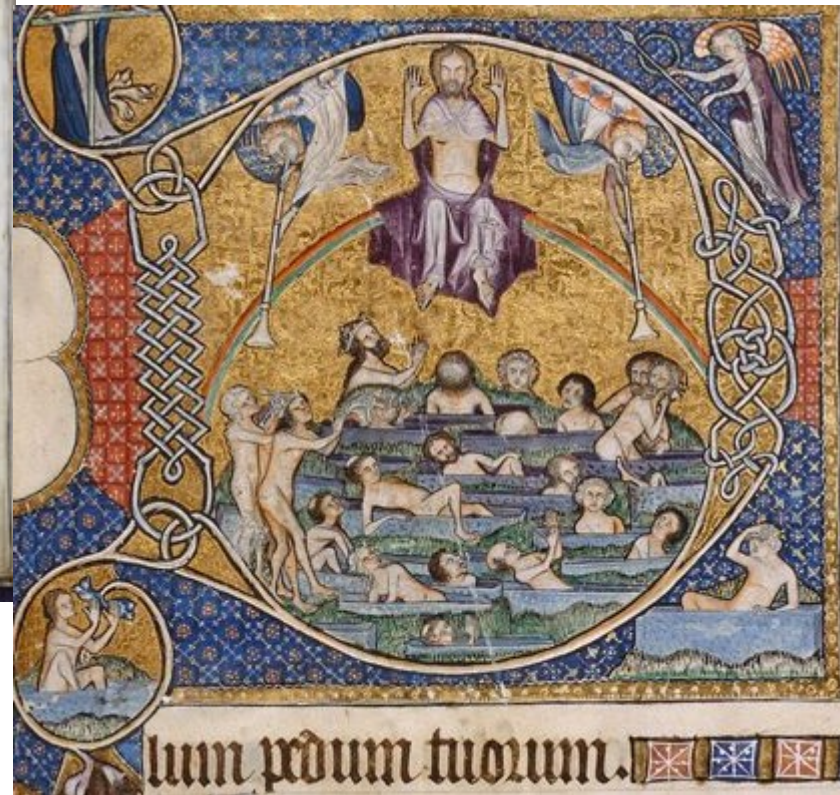 lum pedum tuorum.